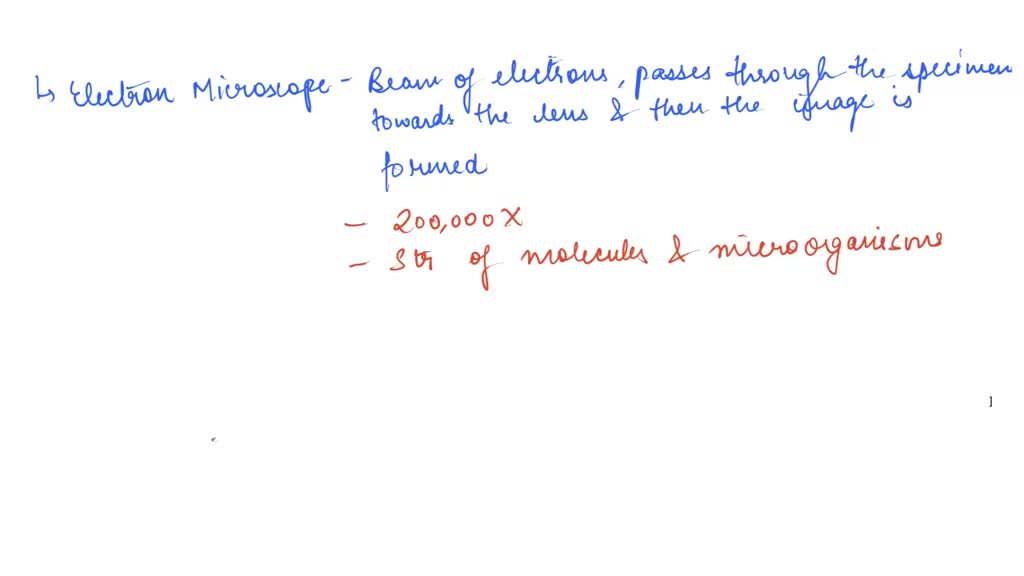 ↳ Electron Microscope - Beam of electrons, passes through the specimen
towards the lens & then the image is
formed
- 200,000 X
- Str of molecules & microorganisms